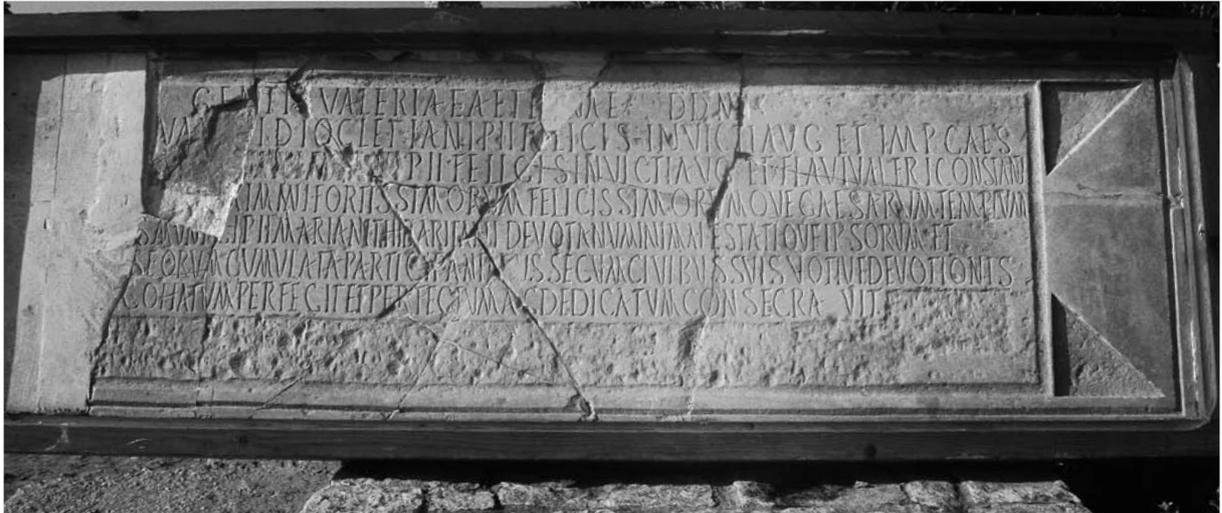 GENTI VALERIAE AETERNAE DD N
VA I DIOCLETIANI PII FELICIS INVICTI AVG ET IMP CAES
PII FELICIS INVICTI AVG ET FLAVI VALERI CONSTANTI
IMIANI FORTISSIMORVM FELICISSIMORVMQVE CAESARVM TEMPLVM
S MVNICIPII MARIANI THIBARITANI DEVOTA NVMINI MAIESTATIQVE IPSORVM ET
SEORVM CVMVLATA PARTICIPANTIBVS SECVM CIVIBVS SVIS VOTIVE DEVOTIONIS
COHATVM PERFECIT ET PERFECTVM AC DEDICATVM CONSECRAVIT